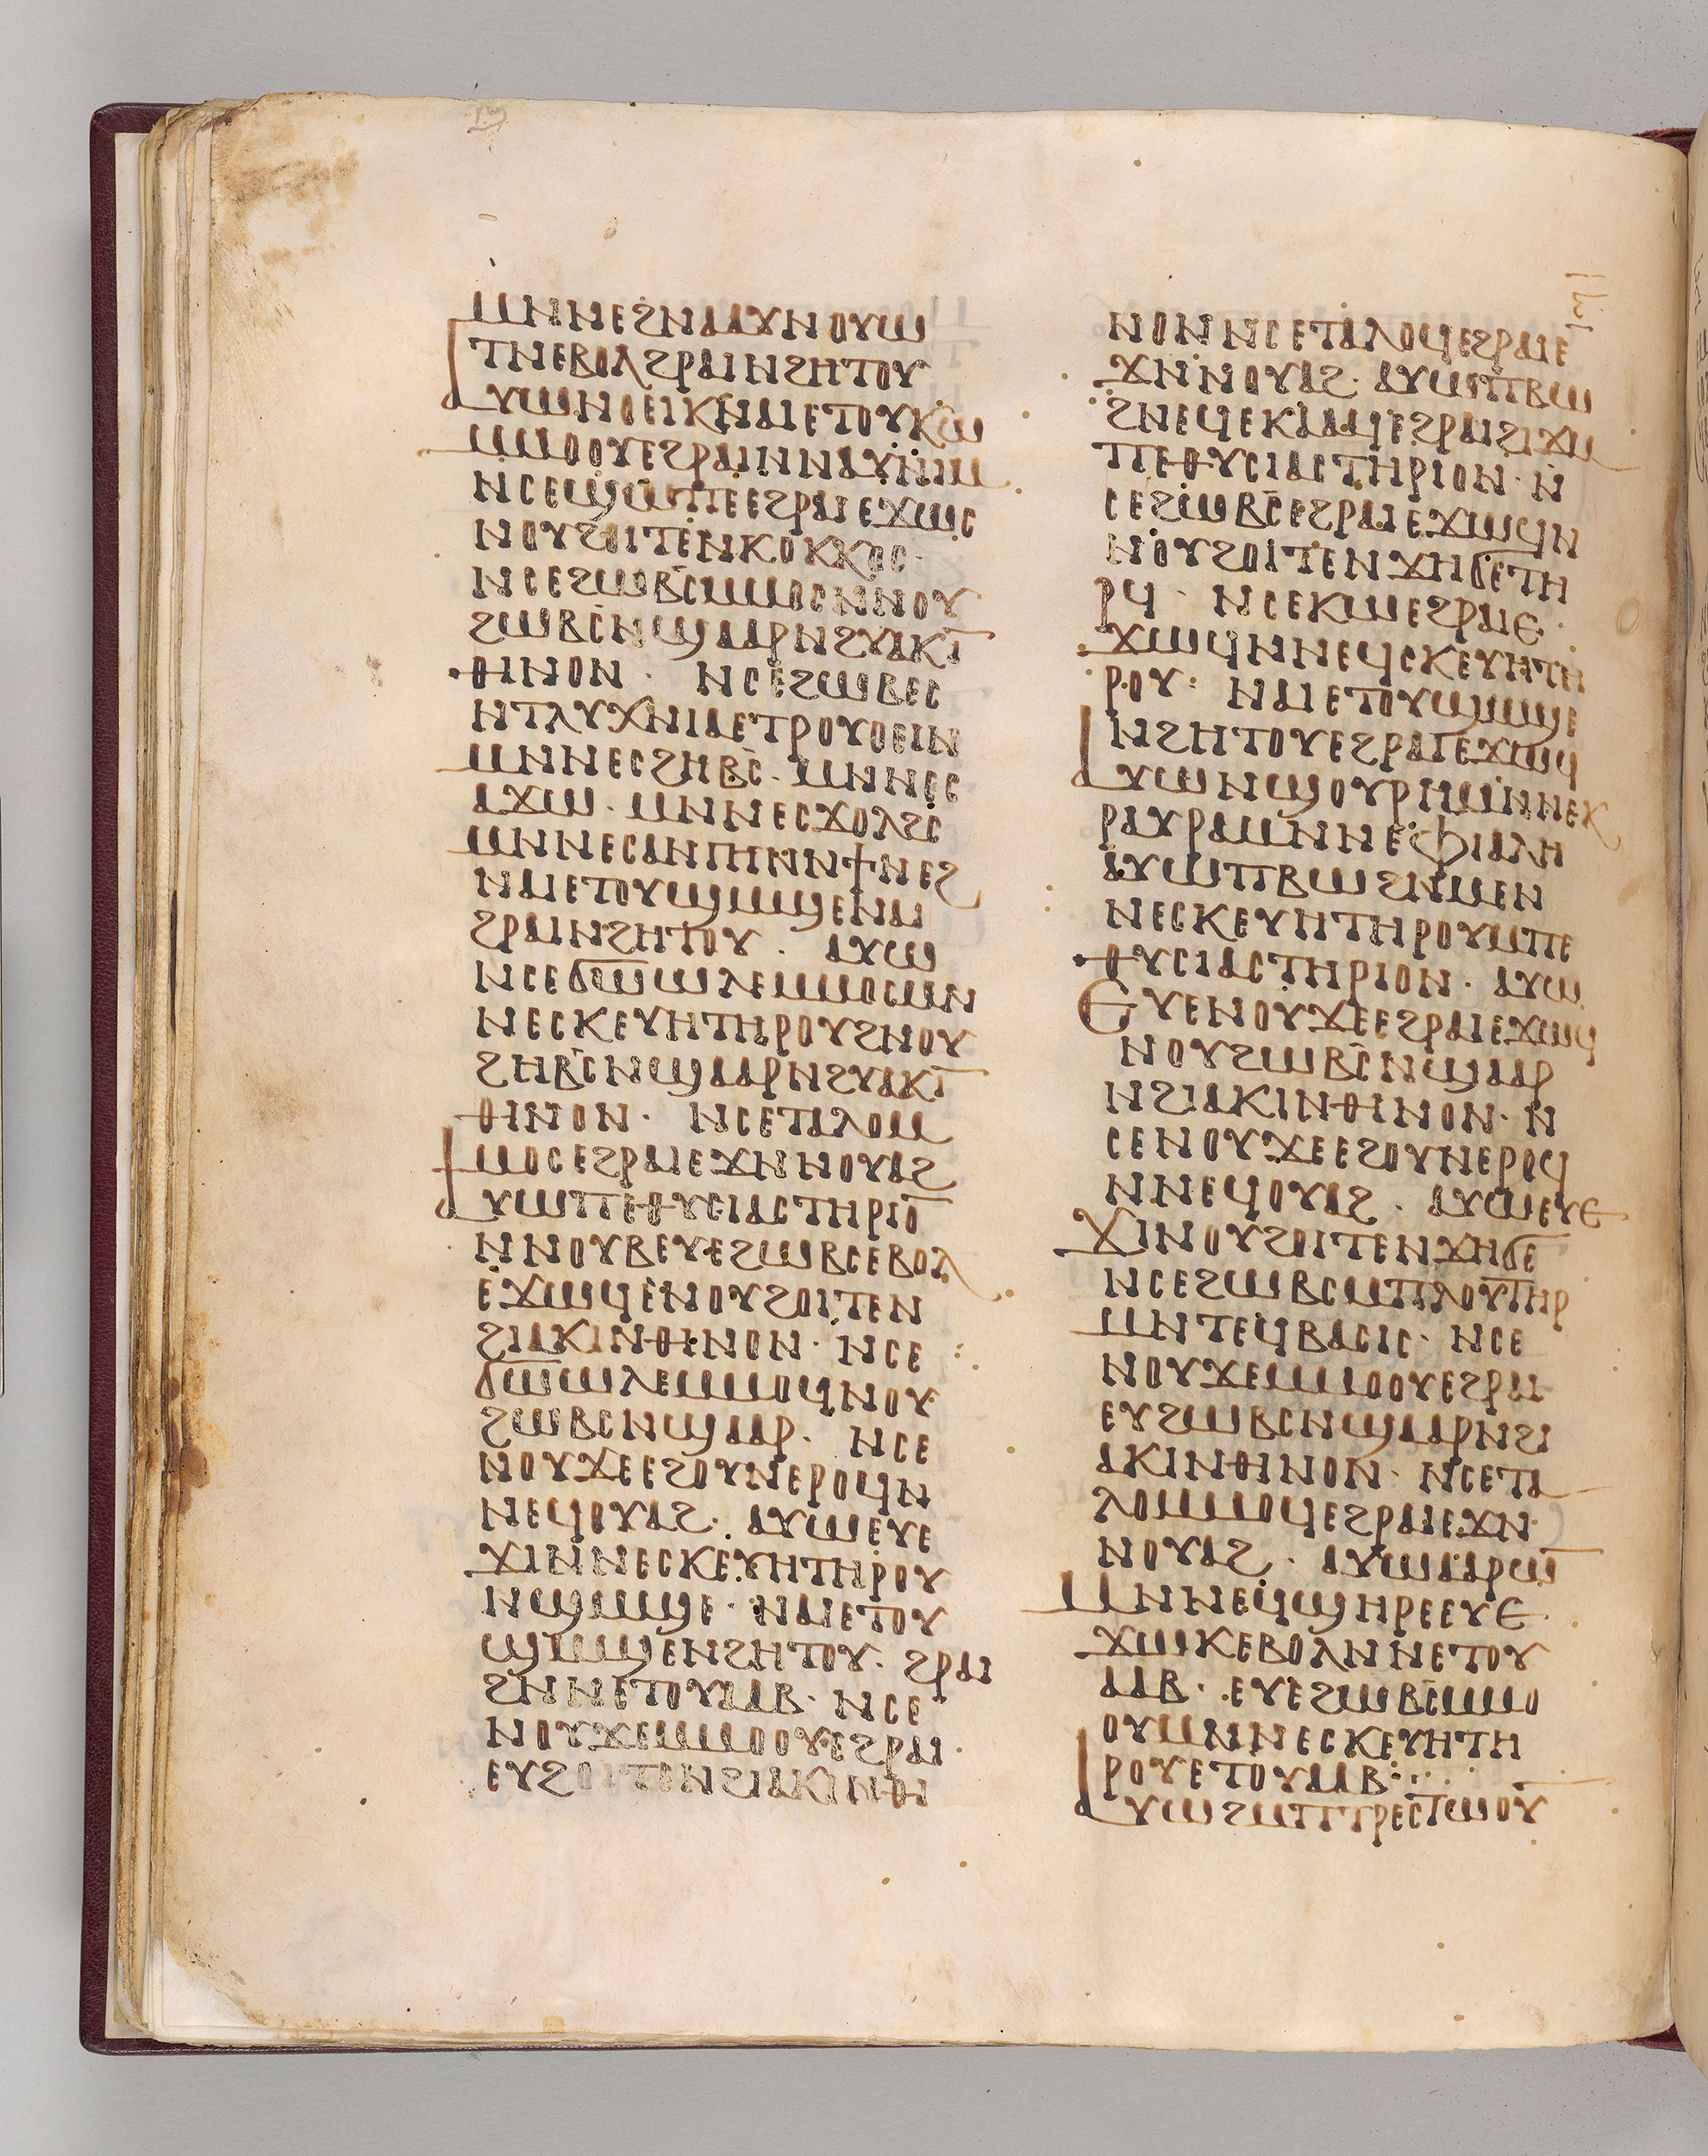 ⲙⲛⲛⲉϩⲛⲁⲁⲩⲛⲟⲩⲱ
ⲧⲛⲉⲃⲟⲗϩⲣⲁⲓⲛϩⲏⲧⲟⲩ
ⲁⲩⲱⲛⲟⲉⲓⲕⲛⲁⲓⲉⲧⲟⲩⲕⲱ
ⲙⲙⲟⲟⲩⲉϩⲣⲁⲓⲛⲛⲁⲩⲛⲓⲙ
ⲛⲥⲉϣⲱⲡⲉⲉϩⲣⲁⲓⲉϫⲱⲥ
ⲛⲟⲩϩⲟⲓⲧⲉⲛⲕⲟⲕⲕⲟⲥ·
ⲛⲥⲉϩⲱⲃⲥⲙⲙⲟⲥⲛⲛⲟⲩ
ϩⲱⲃⲥⲛϣⲁⲁⲣⲛϩⲩⲁⲕⲓ̅
ⲑⲓⲛⲟⲛ· ⲛⲥⲉϩⲱⲃⲉⲥ
ⲛⲧⲗⲩⲭⲛⲓⲁⲉⲧⲣⲟⲩⲟⲉⲓⲛ
ⲙⲛⲛⲉⲥϩⲏⲃⲥ· ⲙⲛⲛⲉⲥ
ⲁϫⲱ· ⲙⲛⲛⲉⲥϫⲟⲗϩⲥ
ⲙⲛⲛⲉⲥⲁⲛⲅⲏⲛⲛϯⲛⲉϩ
ⲛⲁⲓⲉⲧⲟⲩϣⲙϣⲉⲛⲁⲓ
ϩⲣⲁⲓⲛϩⲏⲧⲟⲩ· ⲁⲩⲱ
ⲛⲥⲉϭⲱⲱⲗⲉⲙⲙⲟⲥⲙⲛ
ⲛⲉⲥⲕⲉⲩⲏⲧⲏⲣⲟⲩϩⲛⲟⲩ
ϩⲏⲃⲥⲛϣⲁⲁⲣⲛϩⲩⲁⲕⲓ̅
ⲑⲓⲛⲟⲛ· ⲛⲥⲉⲧⲁⲗⲟⲙ
ⲙⲟⲥⲉϩⲣⲁⲓⲉϫⲛⲛⲟⲩⲁϩ
ⲁⲩⲱⲡⲉⲑⲩⲥⲓⲁⲥⲧⲏⲣⲓⲟ̅
ⲛⲛⲟⲩⲃⲉⲩⲉϩⲱⲃⲥⲉⲃⲟⲗ
ⲉϫⲱϥⲉⲛⲟⲩϩⲟⲓⲧⲉⲛ
ϩⲓⲁⲕⲓⲛⲑⲓⲛⲟⲛ· ⲛⲥⲉ
ϭⲱⲱⲗⲉⲙⲙⲟϥⲛⲟⲩ
ϩⲱⲃⲥⲛϣⲁⲁⲣ· ⲛⲥⲉ
ⲛⲟⲩϫⲉⲉϩⲟⲩⲛⲉⲣⲟϥⲛ
ⲛⲉϥⲟⲩⲁϩ· ⲁⲩⲱⲉⲩⲉ
ϫⲓⲛⲛⲉⲥⲕⲉⲩⲏⲧⲏⲣⲟⲩ
ⲛϣⲙϣⲉ· ⲛⲁⲓⲉⲧⲟⲩ
ϣⲙϣⲉⲛϩⲏⲧⲟⲩ· ϩⲣⲁⲓ
ϩⲛⲛⲉⲧⲟⲩⲁⲁⲃ· ⲛⲥⲉ
ⲛⲟⲩϫⲉⲙⲙⲟⲟⲩⲉϩⲣⲁⲓ
ⲉⲩϩⲟⲓⲧⲉⲛϩⲓⲁⲕⲓⲛⲑⲓ
ⲛⲟⲛⲛⲥⲉⲧⲁⲗⲟϥⲉϩⲣⲁⲓⲉ
ϫⲛⲛⲟⲩⲁϩ· ⲁⲩⲱⲡⲃⲱ
ϩⲛⲉϥⲉⲕⲁⲁϥⲉϩⲣⲁⲓϩⲓϫⲙ
ⲡⲉⲑⲩⲥⲓⲁⲥⲧⲏⲣⲓⲟⲛ· ⲛ
ⲥⲉϩⲱⲃⲥⲉϩⲣⲁⲓⲉϫⲱϥⲛ
ⲛⲟⲩϩⲟⲓⲧⲉⲛϫⲏϭⲉⲧⲏ
ⲣϥ· ⲛⲥⲉⲕⲱⲉϩⲣⲁⲓⲉ
ϫⲱϥⲛⲛⲉϥⲥⲕⲉⲩⲏⲧⲏ
ⲣⲟⲩ: ⲛⲁⲓⲉⲧⲟⲩϣⲙϣⲉ
ⲛϩⲏⲧⲟⲩⲉϩⲣⲁⲓⲉϫⲱϥ
ⲁⲩⲱⲛϣⲟⲩⲣⲏⲙⲛⲛⲉⲕ
ⲣⲁⲩⲣⲁⲙⲛⲛⲉⲫⲓⲁⲗⲏ
ⲁⲩⲱⲡⲃⲱϩⲛⲙⲛ
ⲛⲉⲥⲕⲉⲩⲏⲧⲏⲣⲟⲩⲙⲡⲉ
ⲑⲩⲥⲓⲁⲥⲧⲏⲣⲓⲟⲛ· ⲁⲩⲱ
ⲉⲩⲉⲛⲟⲩϫⲉⲉϩⲣⲁⲓⲉϫⲱϥ
ⲛⲟⲩϩⲱⲃⲥⲛϣⲁⲁⲣ
ⲛϩⲓⲁⲕⲓⲛⲑⲓⲛⲟⲛ· ⲛ
ⲥⲉⲛⲟⲩϫⲉⲉϩⲟⲩⲛⲉⲣⲟϥ
ⲛⲛⲉϥⲟⲩⲁϩ· ⲁⲩⲱⲉⲩⲉ
ϫⲓⲛⲟⲩϩⲟⲓⲧⲉⲛϫⲏϭⲉ
ⲛⲥⲉϩⲱⲃⲥⲙⲡⲗⲟⲩⲧⲏⲣ
ⲙⲛⲧⲉϥⲃⲁⲥⲓⲥ· ⲛⲥⲉ
ⲛⲟⲩϫⲉⲙⲙⲟⲟⲩⲉϩⲣⲁⲓ
ⲉⲩϩⲱⲃⲥⲛϣⲁⲁⲣⲛϩⲓ
ⲁⲕⲓⲛⲑⲓⲛⲟⲛ· ⲛⲥⲉⲧⲁ
ⲗⲟⲙⲙⲟϥⲉϩⲣⲁⲓⲉϫⲛ
ⲛⲟⲩⲁϩ· ⲁⲩⲱⲁⲁⲣⲱ̅
ⲙⲛⲛⲉϥϣⲏⲣⲉⲉⲩⲉ
ϫⲱⲕⲉⲃⲟⲗⲛⲛⲉⲧⲟⲩ
ⲁⲁⲃ· ⲉⲩⲉϩⲱⲃⲥⲙⲙⲟ
ⲟⲩⲙⲛⲛⲉⲥⲕⲉⲩⲏⲧⲏ
ⲣⲟⲩⲉⲧⲟⲩⲁⲁⲃ·
ⲁⲩⲱϩⲙⲡⲧⲣⲉⲥⲧⲱⲟⲩ